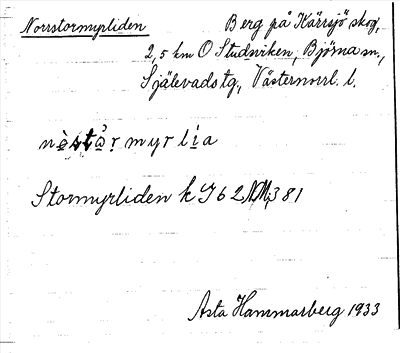 Norrstormyrliden
Berg på Kärrsjö skog,
2,5 km O Studsviken, Björna sn.,
Själevads tg., Västernorrl. l.
Stormyrliden k 962 381
Asta Hammarberg 1933